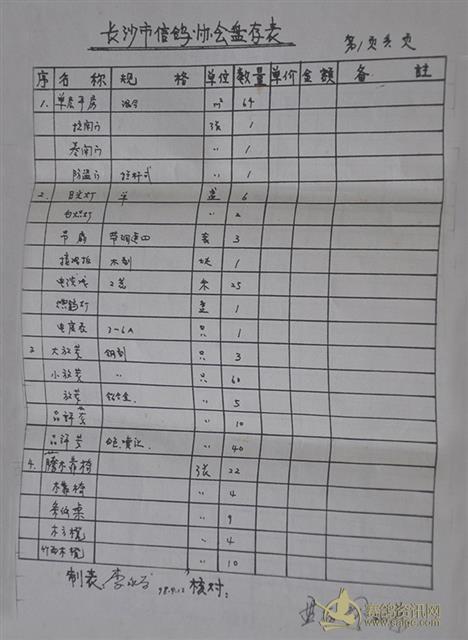 长沙市信鸽协会盘存表
第1页共 页
序 名称 规格 单位 数量 单价 金额 备註
1. 单层平房 混合 m² 64
拉闸门 张 1
卷闸门 〃 1
防盗门 拉杆式 〃 1
2. 日光灯 单 盏 6
白炽灯 〃 2
吊扇 带调速四 套 3
接线板 木制 块 1
电浅 2芯 米 25
盏 1
电度表 3-6A 只 1
3. 大放笼 钢制 只 3
小放笼 〃 只 60
放笼 铝合金 〃 5
品评笼 〃 10
品评笼 〃 40
4. 藤木靠椅 张 22
木靠椅 〃 4
桌 〃 9
木方凳 〃 4
竹面木凳 〃 10
制表: 李 98.9.12 核对:
赛鸽资讯网
www.saige.com